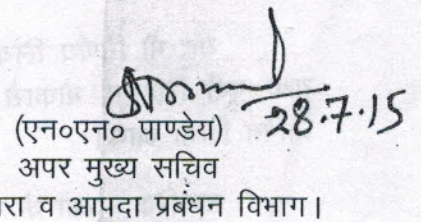 28.7.15
(एन०एन० पाण्डेय)
अपर मुख्य सचिव
रा व आपदा प्रबंधन विभाग।